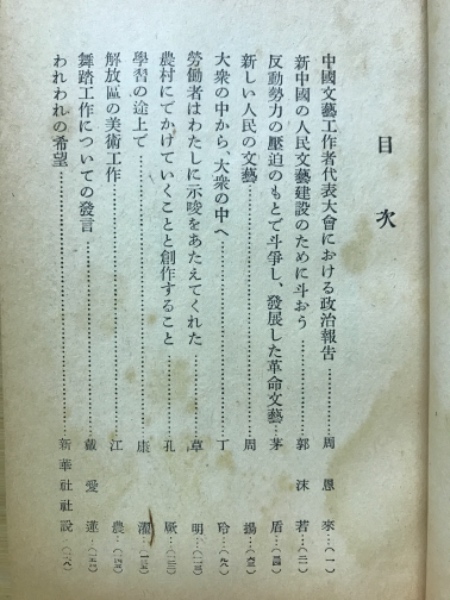 目次
中國文藝工作者代表大會における政治報告…………周恩來…(一)
新中國の人民文藝建設のために斗おう…………郭沫若…(二一)
反動勢力の壓迫のもとで斗爭し、發展した革命文藝…茅盾…(三四)
新しい人民の文藝…………周揚…(六三)
大衆の中から、大衆の中へ…………丁玲…(九八)
勞働者はわたしに示唆をあたえてくれた…………草明…(一一三)
農村にでかけていくことと創作すること…………孔厥…(一二三)
學習の途上で…………康濯…(一三五)
解放區の美術工作…………江農…(一四五)
舞踏工作についての發言…………戴愛蓮…(一五四)
われわれの希望…………新華社社説…(一六八)